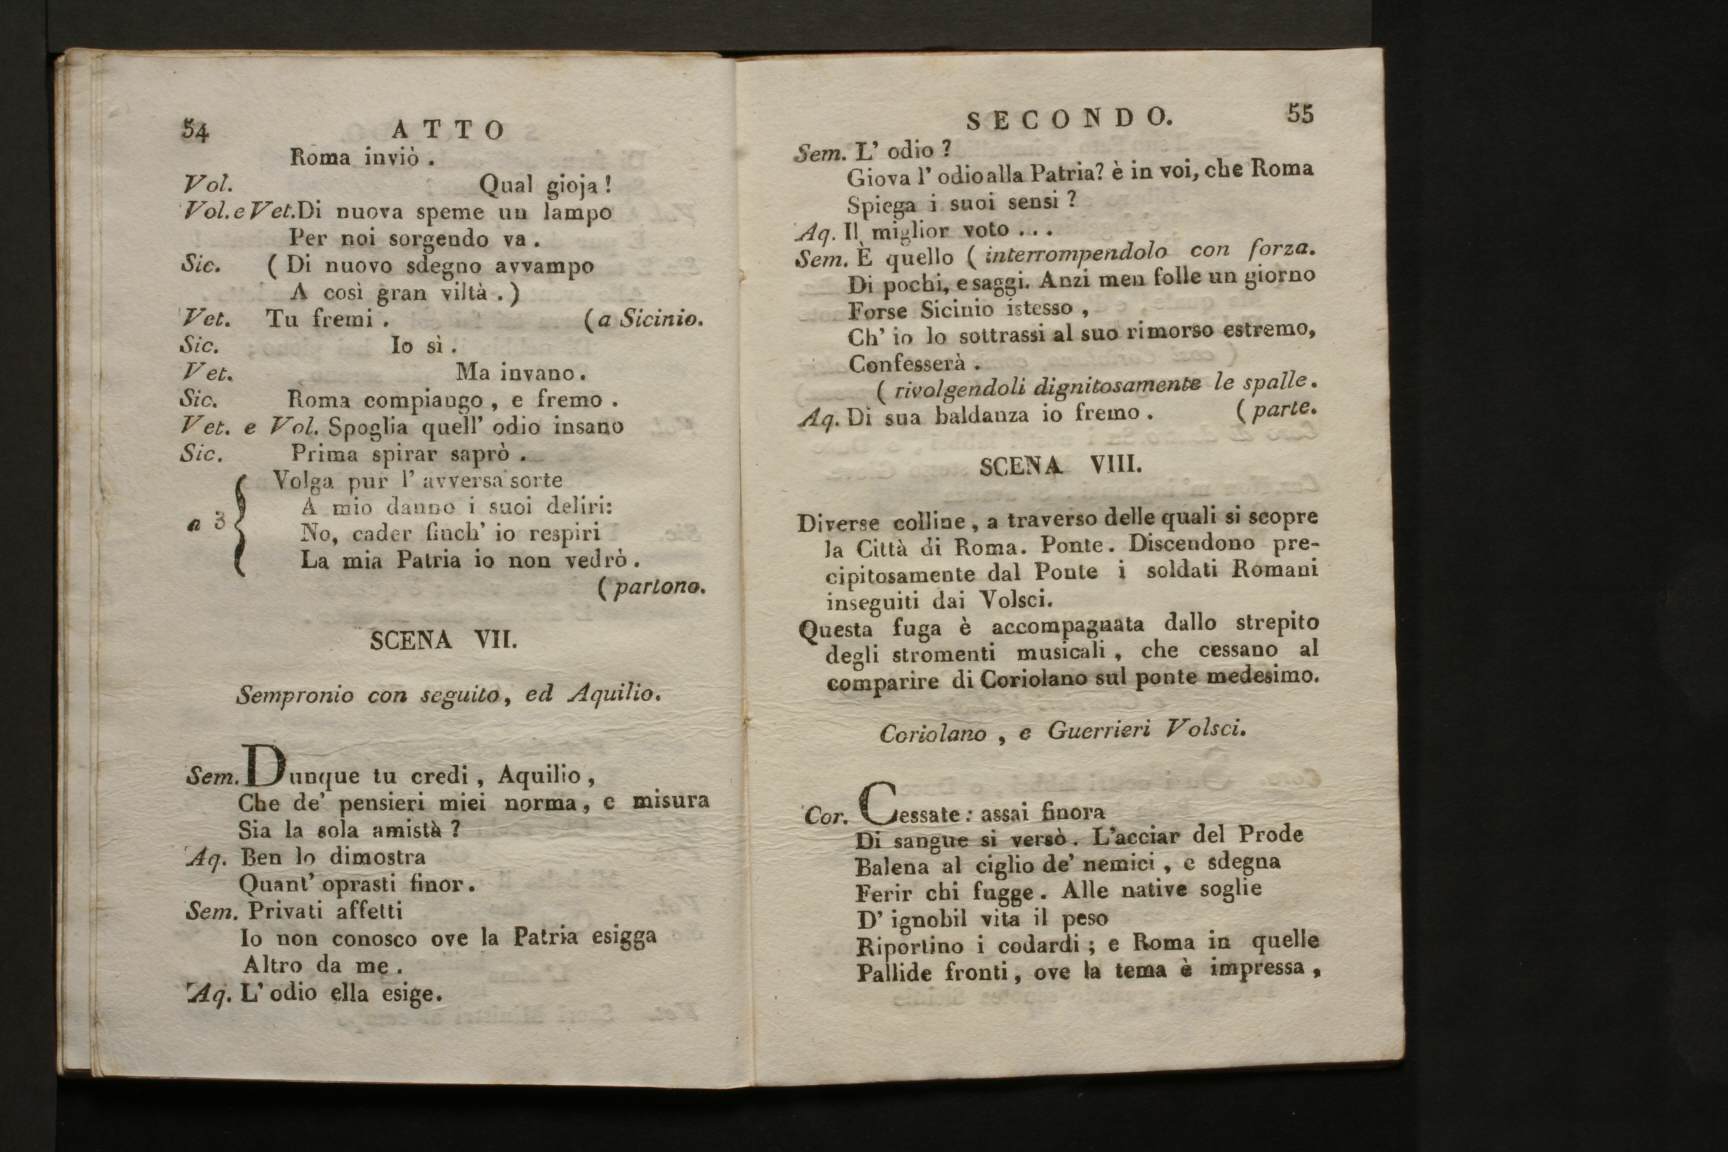 54 ATTO
Roma inviò .
Vol. Qual gioja !
Vol. e Vet. Di nuova speme un lampo
Per noi sorgendo va .
Sic. ( Di nuovo sdegno avvampo
A così gran viltà . )
Vet. Tu fremi . ( a Sicinio.
Sic. Io sì .
Vet. Ma invano .
Sic. Roma compiango , e fremo .
Vet. e Vol. Spoglia quell' odio insano
Sic. Prima spirar saprò .
Volga pur l' avversa sorte
A mio danno i suoi deliri:
a 3 No, cader finch' io respiri
La mia Patria io non vedrò .
( partono.
SCENA VII.
Sempronio con seguito, ed Aquilio.
Sem. Dunque tu credi , Aquilio ,
Che de' pensieri miei norma , e misura
Sia la sola amistà ?
Aq. Ben lo dimostra
Quant' oprasti finor .
Sem. Privati affetti
Io non conosco ove la Patria esigga
Altro da me .
Aq. L' odio ella esige.
SECONDO. 55
Sem. L' odio ?
Giova l' odio alla Patria? è in voi, che Roma
Spiega i suoi sensi ?
Aq. Il miglior voto . . .
Sem. È quello ( interrompendolo con forza.
Di pochi, e saggi. Anzi men folle un giorno
Forse Sicinio istesso ,
Ch' io lo sottrassi al suo rimorso estremo,
Confesserà .
( rivolgendoli dignitosamente le spalle .
Aq. Di sua baldanza io fremo . ( parte.
SCENA VIII.
Diverse colline , a traverso delle quali si scopre
la Città di Roma. Ponte. Discendono pre-
cipitosamente dal Ponte i soldati Romani
inseguiti dai Volsci.
Questa fuga è accompagnata dallo strepito
degli stromenti musicali , che cessano al
comparire di Coriolano sul ponte medesimo.
Coriolano , e Guerrieri Volsci.
Cor. Cessate : assai finora
Di sangue si versò . L'acciar del Prode
Balena al ciglio de' nemici , e sdegna
Ferir chi fugge . Alle native soglie
D' ignobil vita il peso
Riportino i codardi ; e Roma in quelle
Pallide fronti , ove la tema è impressa ,